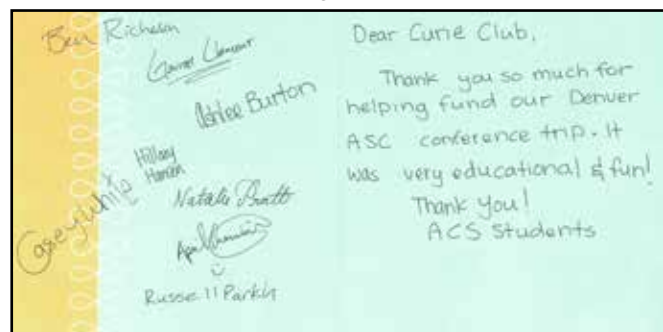 Ben Richelsen
Clement
Ashlee Burton
Hillary
Hansen
Natalie Pratt
Casey White
April
Russell Parkin
Dear Curie Club,
Thank you so much for
helping fund our Denver
ASC conference trip. It
was very educational & fun!
Thank you!
ACS Students